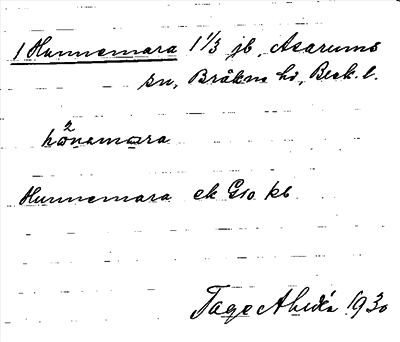 1 Hunnemara 1 1/3 jb, Asarums
sn, Bräkne hd, Blek. l.
2
hönamara
Hunnemara ek G10 kb
Tage Ahldén 1930